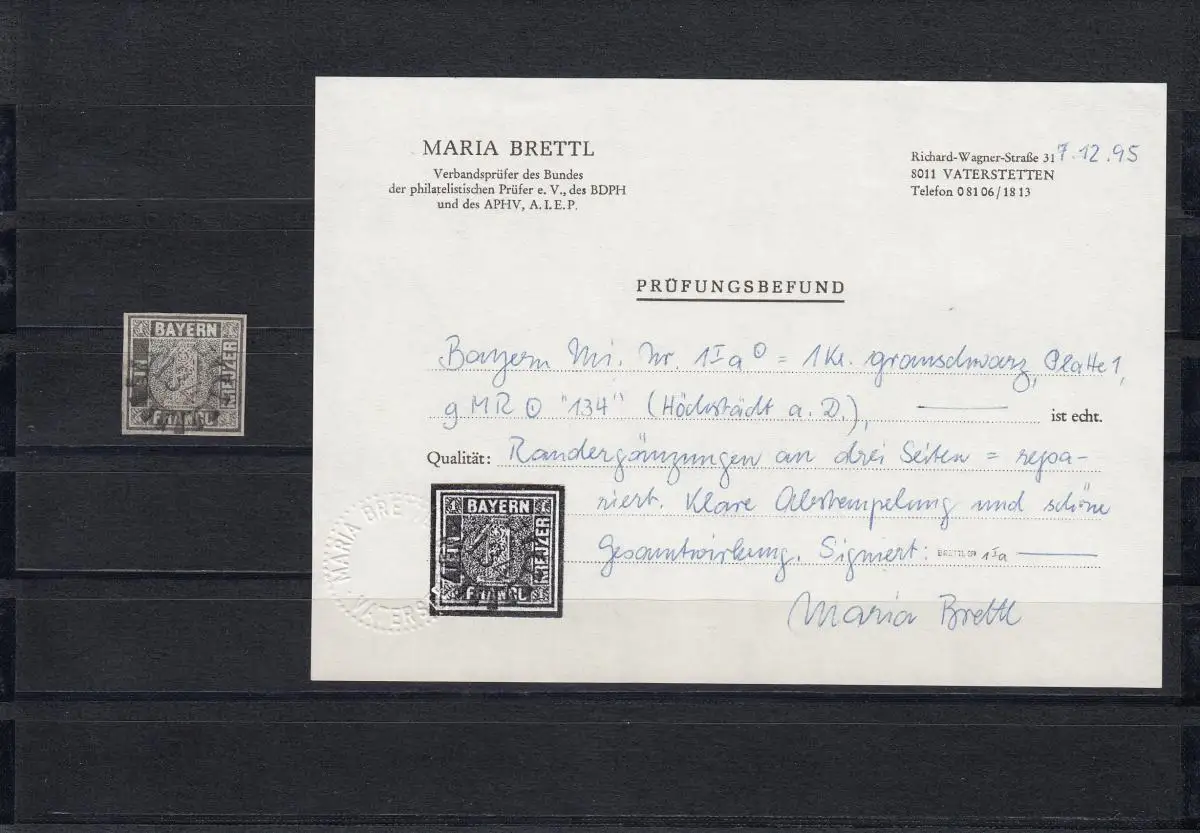 MARIA BRETTL
Verbandsprüfer des Bundes
der philatelistischen Prüfer e. V., des BDPH
und des APHV, A. I. E. P.
Richard-Wagner-Straße 31
8011 VATERSTETTEN
Telefon 0 81 06 / 18 13
7.12.95
PRÜFUNGSBEFUND
Bayern Mi. Nr. 1Ia⊙ = 1 Kr. grauschwarz, Platte 1,
gMR ⊙ "134" (Höchstädt a. D.), ist echt.
Qualität: Randergänzungen an drei Seiten = repa-
riert. Klare Abstempelung und schöne
Gesamtwirkung. Signiert: BRETTL BPP 1Ia
Maria Brettl
BAYERN
KREUZER
FRANCO
BAYERN
KREUZER
FRANCO
MARIA BRETT
VATERS